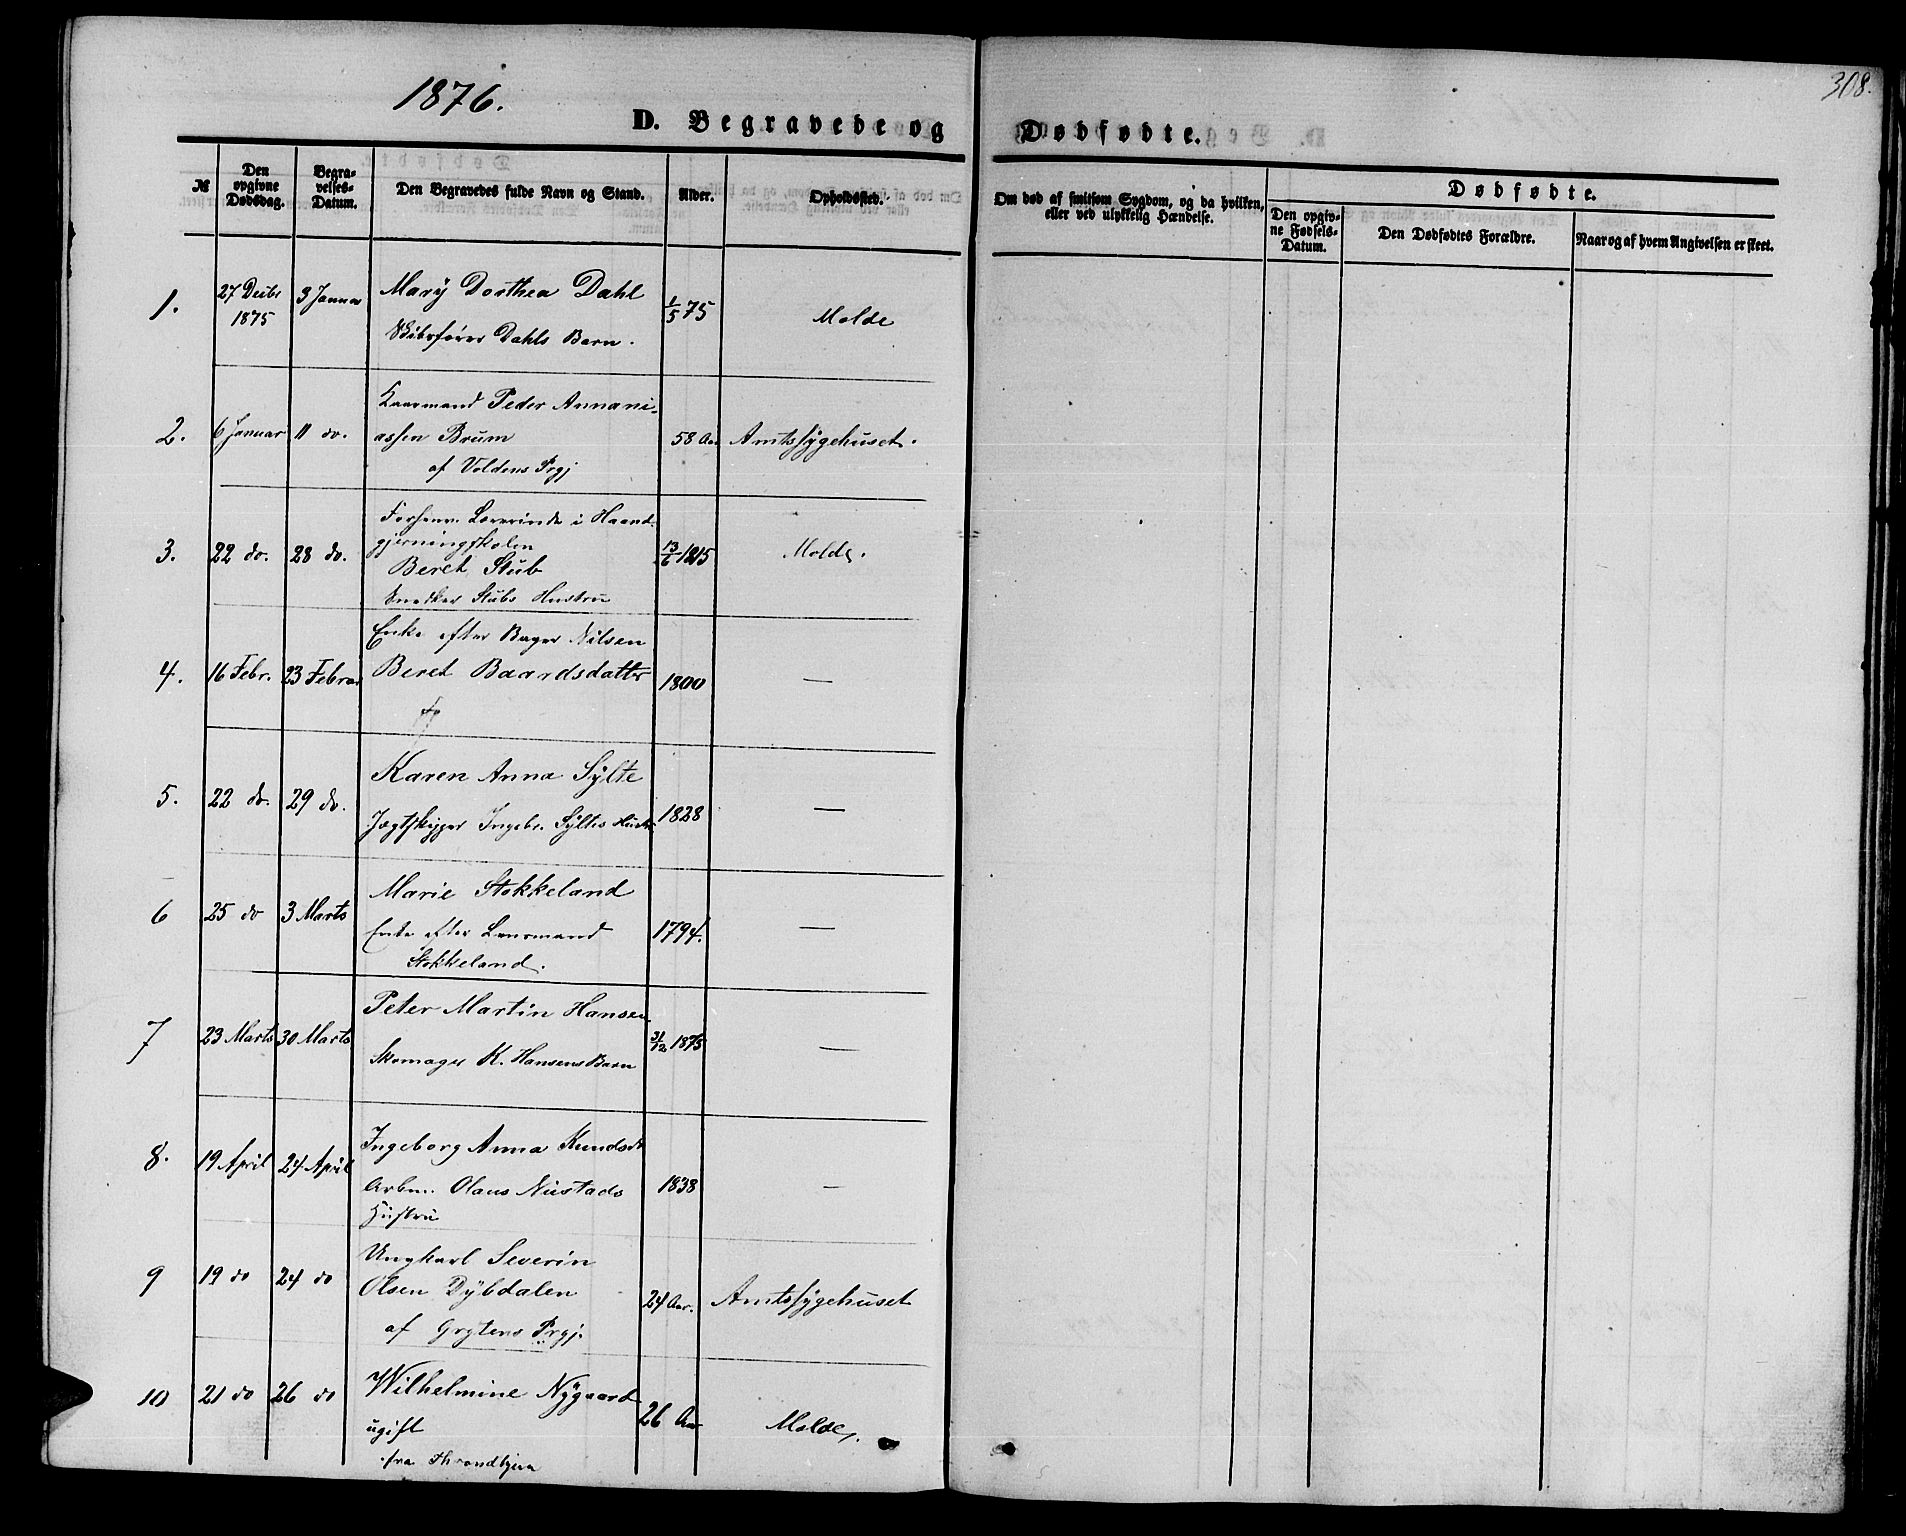 1876.
308.
D. Begravede og Dødfødte.
№
Den opgivne Dødsdag.
Begravelses-Datum.
Den Begravedes fulde Navn og Stand.
Alder.
Opholdssted.
Om død af smitsom Sygdom, og da hvilken, eller ved ulykkelig Hændelse.
Dødfødte.
Den opgivne Fødsels-Datum.
Den Dødfødtes Forældre.
Naar og af hvem Angivelsen er skeet.
1. 27 Decbr 1875 3 Januar Mary Dorthea Dahl 1/5 75 Molde
Dahls Barn.
2. 6 Januar 11 do. Peder Annaniassen Brum 58 Aar Amtssygehuset.
af Voldens Prgj
3. 22 do. 28 do. Forhenv. Lærerinde i Haandgjerningsskolen 13/6 1815 Molde.
Beret Stub
Snedker Stubs Hustru
4. 16 Febr. 23 Februar Enke efter Bager Nilsen 1800 —
Beret Baardsdatter
5. 22 do. 29 do. Karen Anna Sylte 1828 —
Jægtskipper Ingebr. Syltes Hustr
6 25 do 3 Marts Marie Stokkeland 1794. —
Enke efter Lensmand
Stokkeland.
7 23 Marts 30 Marts Peter Martin Hansen 31/12 1875 —
Skomager K. Hansens Barn
8. 19 April 24 April Ingeborg Anna Knudsdt 1838 —
Arbm. Olaus Nustads
Hustru
9 19 do 24 do Ungkarl Severin 24 Aar. Amtssygehuset
Olsen Dybdalen
af Grytens Prgj.
10 21 do 26 do Wilhelmine Nygaard 26 Aar Molde.
ugift
fra Throndhjem